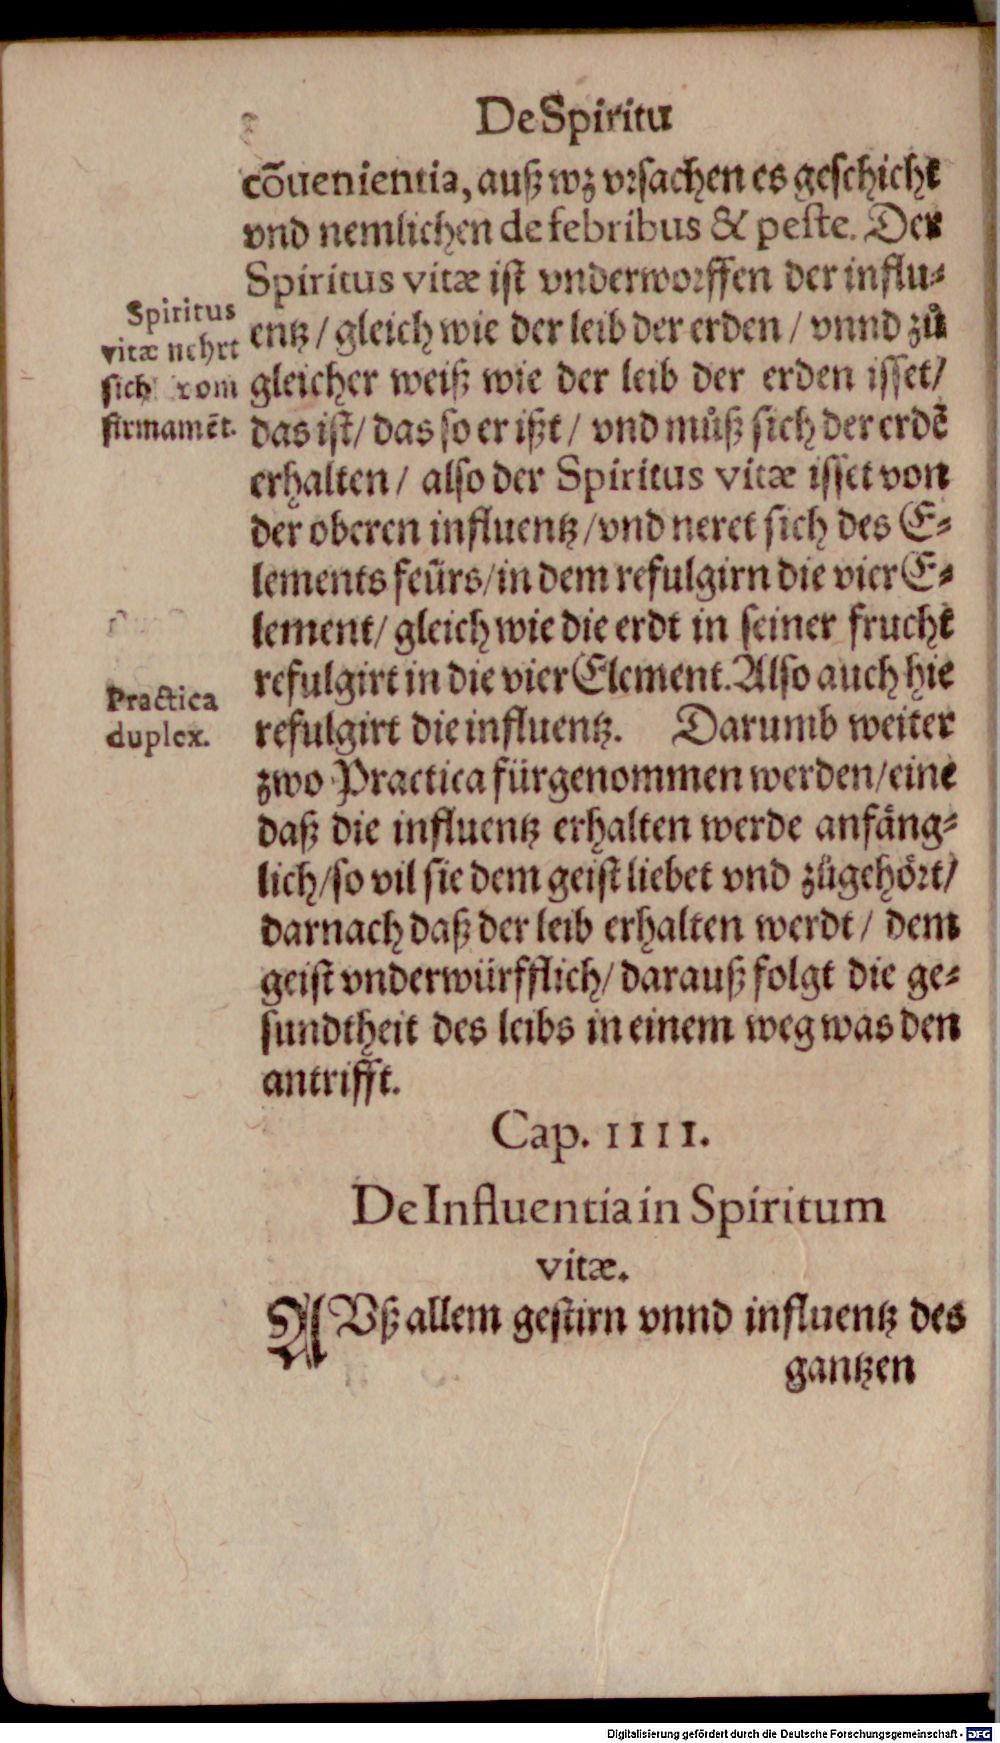 De Spiritu
cõuenientia, auß wz vrsachen es geschicht
vnd nemlichen de febribus & peste. Der
Spiritus vitæ ist vnderworffen der influ-
entz / gleich wie der leib der erden / vnnd zů
gleicher weiß wie der leib der erden isset/
das ist/ das so er ißt / vnd můß sich der erdẽ
erhalten / also der Spiritus vitæ isset von
der oberen influentz /vnd neret sich des E-
lements feürs/in dem refulgirn die vier E-
lement/ gleich wie die erdt in seiner frucht
refulgirt in die vier Element. Also auch hie
refulgirt die influentz. Darumb weiter
zwo Practica fürgenommen werden/eine
daß die influentz erhalten werde anfäng-
lich/so vil sie dem geist liebet vnd zůgehört/
darnach daß der leib erhalten werdt / dem
geist vnderwürfflich/ darauß folgt die ge-
sundtheit des leibs in einem weg was den
antrifft.
Spiritus
vitæ nehrt
sich vom
firmamẽt.
Practica
duplex.
Cap. IIII.
De Influentia in Spiritum
vitæ.
AVß allem gestirn vnnd influentz des
gantzen
Digitalisierung gefördert durch die Deutsche Forschungsgemeinschaft - DFG